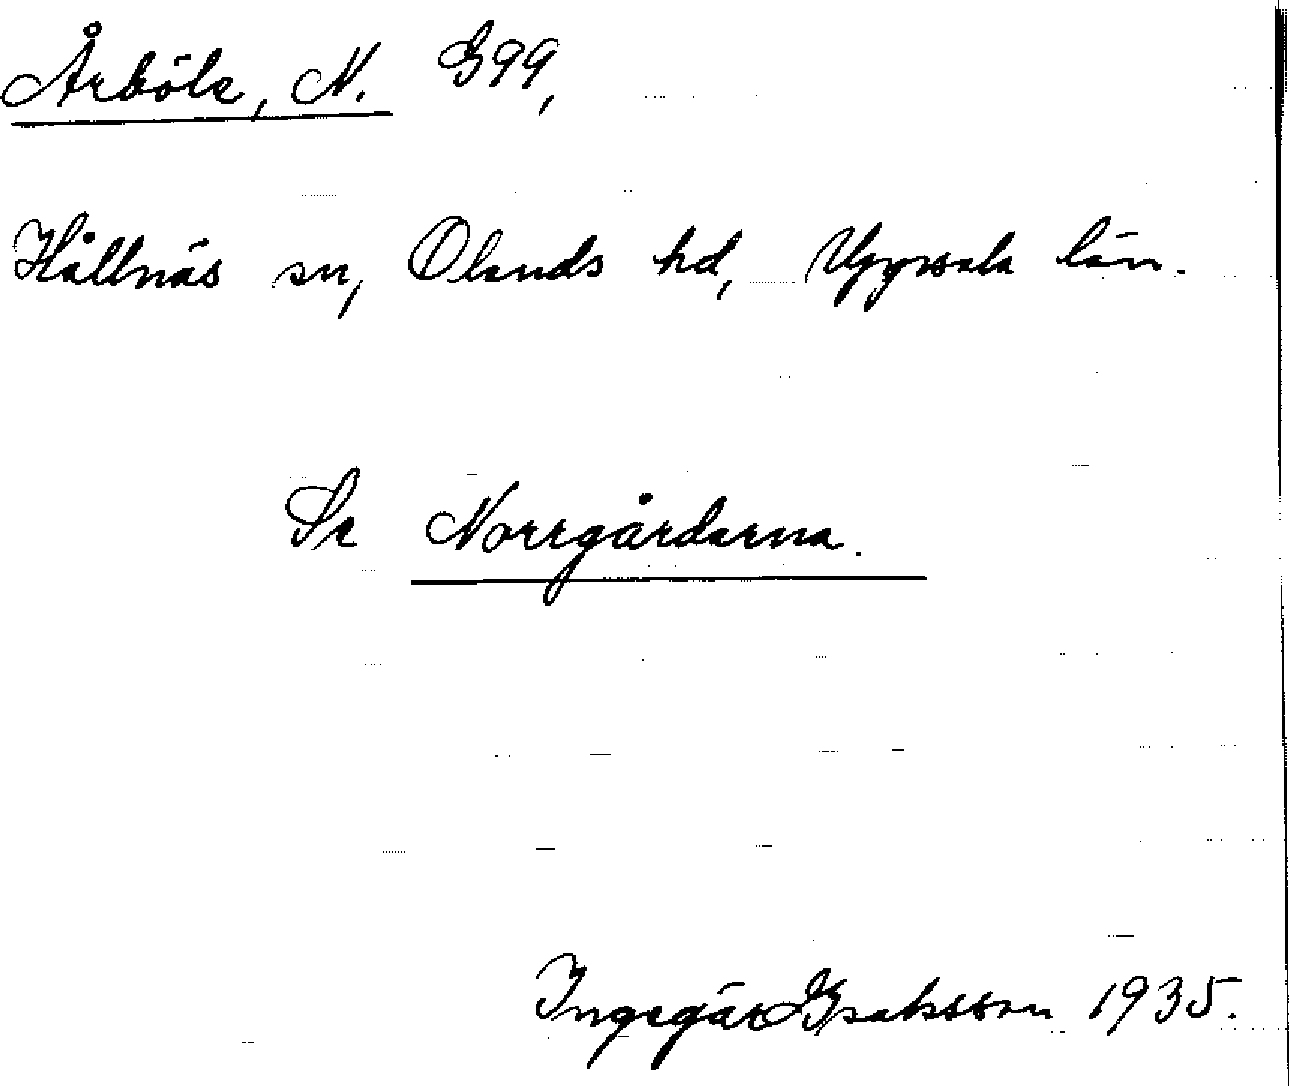 Årböle, N. G99,
Hållnäs sn, Olands hd, Uppsala län.
Se Norrgårdarna.
Ingegär Isaksson 1935.